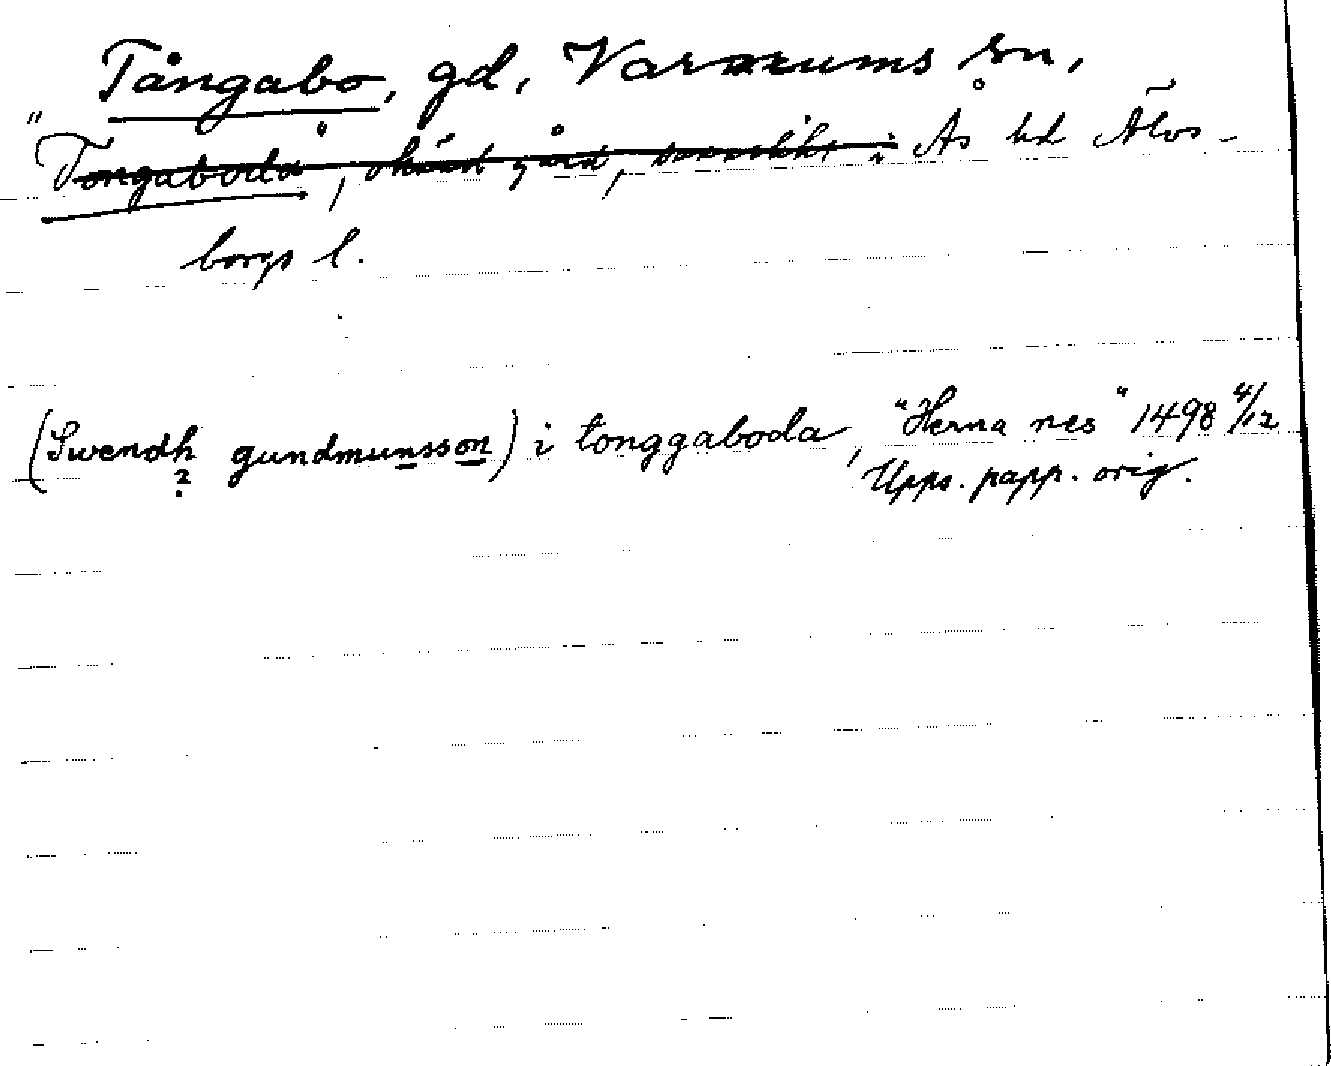 Tångabo, gd, Varnums sn,
"Tångaboda, okänd gård, sannolikt i Ås hd Älvs-
borgs l.
(Swendh gundmunsson) i tonggaboda, "Herna nes" 1498 4/12
?
Upps. papp. orig.